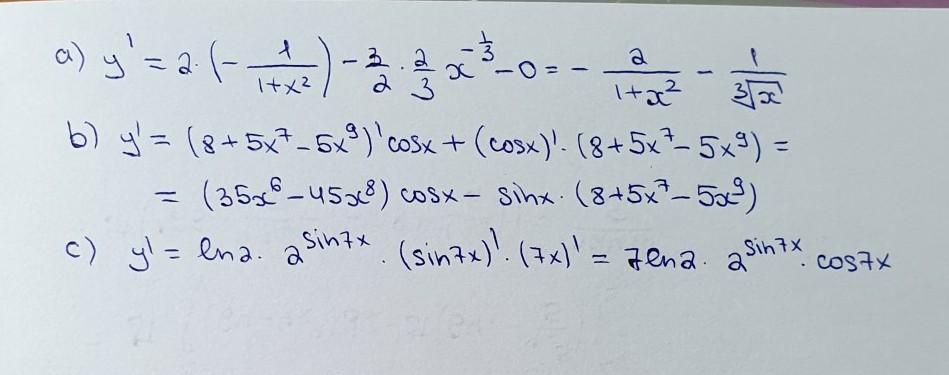 a) y' = 2·(-1/(1+x²)) - 3/2 · 2/3 x^(-1/3) - 0 = - 2/(1+x²) - 1/∛x
b) y' = (8+5x⁷-5x⁹)' cosx + (cosx)' · (8+5x⁷-5x⁹) =
= (35x⁶-45x⁸) cosx - sinx · (8+5x⁷-5x⁹)
c) y' = ln2 · 2^(sin7x) · (sin7x)' · (7x)' = 7ln2 · 2^(sin7x) · cos7x